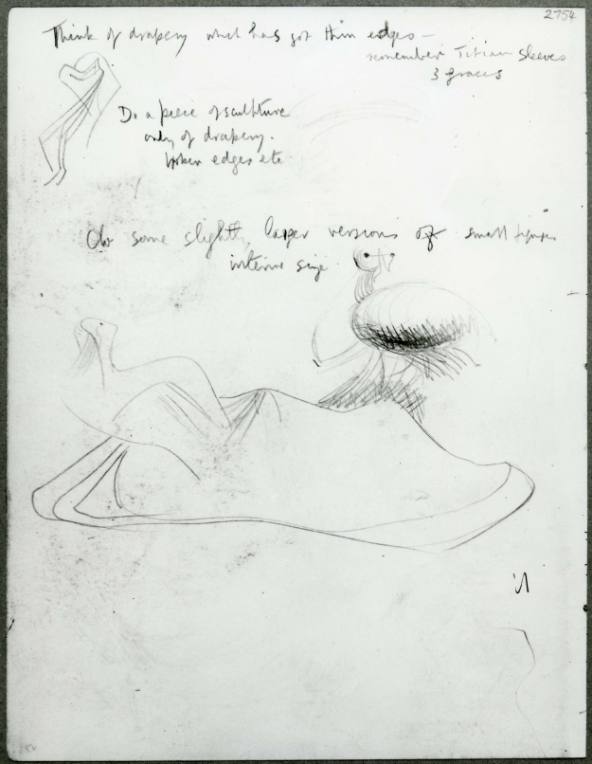 2754
Think of drapery which has got thin edges –
remember Titian sleeves
3 graces
Do a piece of sculpture
only of drapery.
broken edges etc
Do some slightly larger versions of small
size